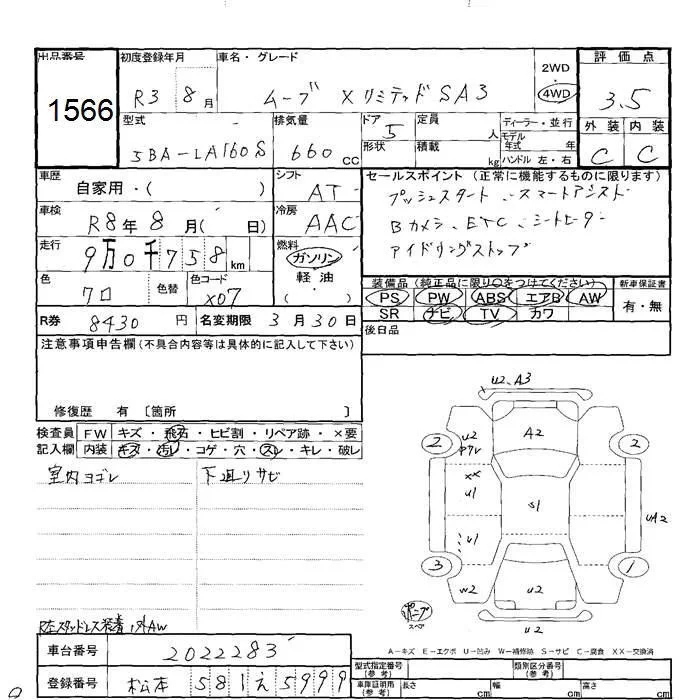 出品番号 初度登録年月 車名・グレード 2WD 評価点
1566 R3 8月 ムーブ X リミテッド SA3 4WD 3.5
型式 排気量 ドア 定員 ディーラー・並行 外装 内装
5BA-LA160S 660cc 5 人 モデル 年式 年 C C
形状 積載 kg ハンドル 左・右
車歴 シフト セールスポイント(正常に機能するものに限ります)
自家用・( ) AT プッシュスタート、スマートアシスト
車検 冷房 Bカメラ、ETC、シートヒーター
R8年8月( 日) AAC アイドリングストップ
走行 燃料
9万0千758km ガソリン
軽油
( )
色 色替 色コード 装備品(純正品に限り○をつけてください) 新車保証書
クロ X07 PS PW ABS エアB AW 有・無
SR ナビ TV カワ
R券 8430円 名変期限 3月30日 後日品
注意事項申告欄(不具合内容等は具体的に記入して下さい)
修復歴 有 〔箇所 〕
検査員 FW キズ・飛石・ヒビ割・リペア跡・×要
記入欄 内装 キズ・汚レ・コゲ・穴・スレ・キレ・破レ
室内ヨゴレ 下廻リサビ
U2、A3
2 U2 アタレ A2 2
XX
U1 S1 UA2
U1
3 W2 U2 1
スペア U2
積スタッドレス装着 1外AW
A-キズ E-エクボ U-凹み W-補修跡 S-サビ C-腐食 XX-交換済
車台番号 2022283
型式指定番号(参考) 類別区分番号(参考)
登録番号 松本 581 え 5999
車庫証明用(参考) 長さ cm 幅 cm 高さ cm